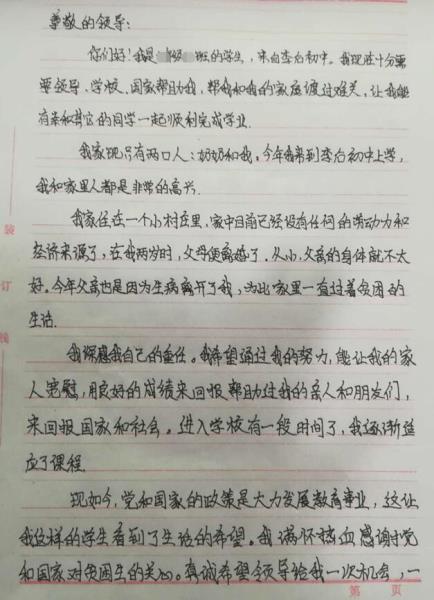 尊敬的领导：
你们好！我是 级 班的学生，来自李台初中。我现在十分需
要领导、学校、国家帮助我，帮我和我的家庭渡过难关，让我能
有亲和其它的同学一起顺利完成学业.
我家现只有两口人：奶奶和我。今年我来到李台初中上学，
我和家里人都是非常的高兴.
我家住在一个小村庄里，家中目前已经没有任何的劳动力和
经济来源了，在我两岁时，父母便离婚了.从小，父亲的身体就不太
好。今年父亲也是因为生病离开了我，为此家里一直过着贫困的
生活.
我深感我自己的责任。我希望通过我的努力，能让我的家
人宽慰，用良好的成绩来回报帮助过我的亲人和朋友们，
来回报国家和社会。进入学校有一段时间了，我逐渐适
应了课程.
现如今，党和国家的政策是大力发展教育事业，这让
我这样的学生看到了生活的希望。我满怀热血感谢党
和国家对贫困生的关心。真诚希望领导给我一次机会，一
装
订
线
第 页